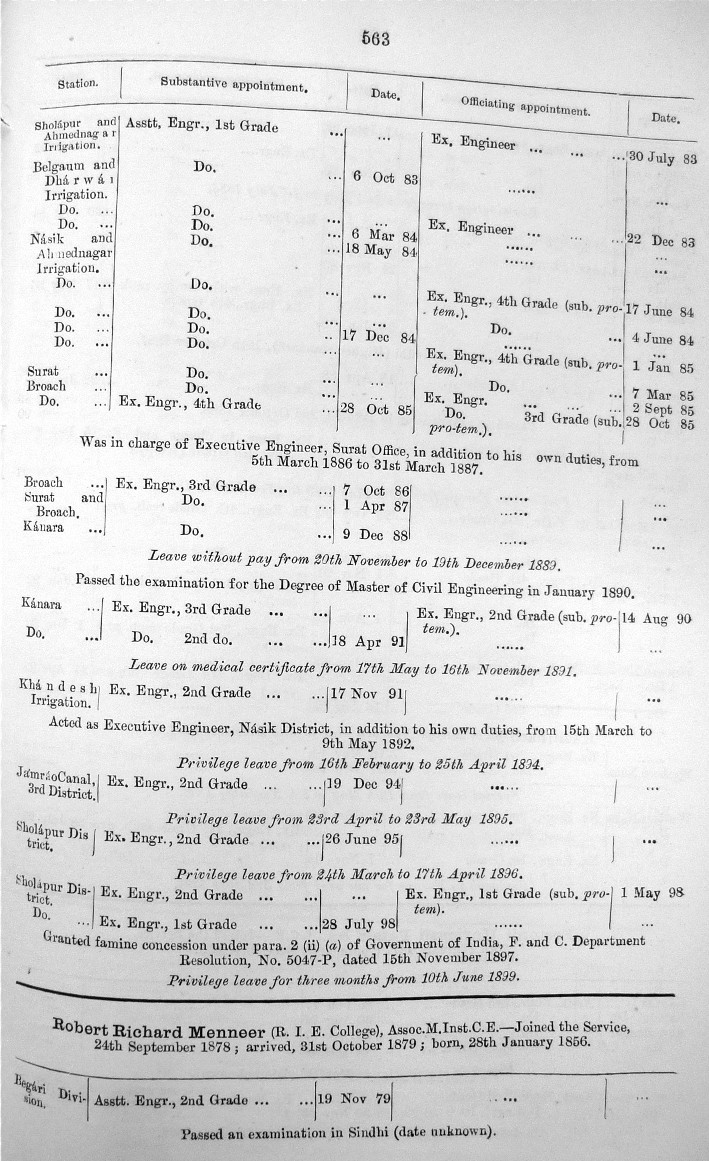 563
Station. Substantive appointment. Date. Officiating appointment. Date.
Sholápur and Asstt. Engr., 1st Grade ... ... Ex. Engineer ... ... ... 30 July 83
Ahmednagar
Irrigation.
Belgaum and Do. ... 6 Oct 83 ...... ...
Dhárwár
Irrigation.
Do. ... Do. ... ... Ex. Engineer ... ... ... 22 Dec 83
Do. ... Do. ... 6 Mar 84 ...... ...
Násik and Do. ... 18 May 84 ...... ...
Ahmednagar
Irrigation.
Do. ... Do. ... ... Ex. Engr., 4th Grade (sub. pro- 17 June 84
tem.).
Do. ... Do. ... ... Do. ... 4 June 84
Do. ... Do. .. 17 Dec 84 ...... ...
Do. ... Do. ... ... Ex. Engr., 4th Grade (sub. pro- 1 Jan 85
tem).
Surat ... Do. ... ... Do. ... 7 Mar 85
Broach ... Do. ... ... Ex. Engr. ... ... ... 2 Sept 85
Do. ... Ex. Engr., 4th Grade ... 28 Oct 85 Do. 3rd Grade (sub. 28 Oct 85
pro-tem.).
Was in charge of Executive Engineer, Surat Office, in addition to his own duties, from
5th March 1886 to 31st March 1887.
Broach ... Ex. Engr., 3rd Grade ... ... 7 Oct 86 ...... ...
Surat and Do. ... 1 Apr 87 ...... ...
Broach.
Kánara ... Do. ... 9 Dec 88 ...... ...
Leave without pay from 20th November to 19th December 1889.
Passed the examination for the Degree of Master of Civil Engineering in January 1890.
Kánara ... Ex. Engr., 3rd Grade ... ... ... Ex. Engr., 2nd Grade (sub. pro- 14 Aug 90
tem.).
Do. ... Do. 2nd do. ... ... 18 Apr 91 ...... ...
Leave on medical certificate from 17th May to 16th November 1891.
Khándesh Ex. Engr., 2nd Grade ... ... 17 Nov 91 ...... ...
Irrigation.
Acted as Executive Engineer, Násik District, in addition to his own duties, from 15th March to
9th May 1892.
Privilege leave from 16th February to 25th April 1894.
Jámráo Canal, Ex. Engr., 2nd Grade ... ... 19 Dec 94 ...... ...
3rd District.
Privilege leave from 23rd April to 23rd May 1895.
Sholápur Dis Ex. Engr., 2nd Grade ... ... 26 June 95 ...... ...
trict.
Privilege leave from 24th March to 17th April 1896.
Sholápur Dis- Ex. Engr., 2nd Grade ... ... ... Ex. Engr., 1st Grade (sub. pro- 1 May 98
trict. tem).
Do. ... Ex. Engr., 1st Grade ... ... 28 July 98 ...... ...
Granted famine concession under para. 2 (ii) (a) of Government of India, F. and C. Department
Resolution, No. 5047-P, dated 15th November 1897.
Privilege leave for three months from 10th June 1899.
Robert Richard Menneer (R. I. E. College), Assoc.M.Inst.C.E.—Joined the Service,
24th September 1878 ; arrived, 31st October 1879 ; born, 28th January 1856.
Begári Divi- Asstt. Engr., 2nd Grade ... ... 19 Nov 79 ... ...
sion.
Passed an examination in Sindhi (date unknown).